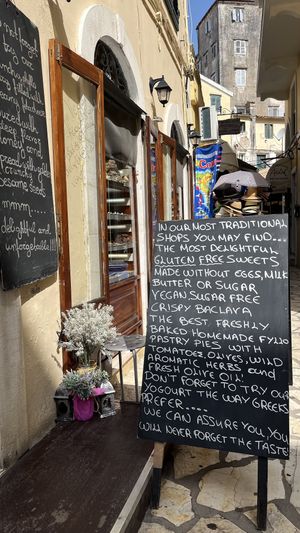 not forget
our
with
and
crunchy
sesame seed
mmm...
delightful and
unforgetable!!!!
IN OUR MOST TRADITIONAL
SHOPS YOU MAY FIND...
THE MOST DELIGHTFUL
GLUTEN FREE SWEETS
MADE WITHOUT EGGS, MILK
BUTTER OR SUGAR
VEGAN, SUGAR FREE
CRISPY BACLAVA
THE BEST FRESHLY
BAKED HOMEMADE FYLLO
PASTRY PIES WITH
TOMATOEZ, OLIVES, WILD
AROMATIC HERBS AND
FRESH OLIVE OIL.
DON'T FORGET TO TRY OUR
YOGOURT THE WAY GREEKS
PREFER....
WE CAN ASSURE YOU, YOU
WILL NEVER FORGET THE TASTE